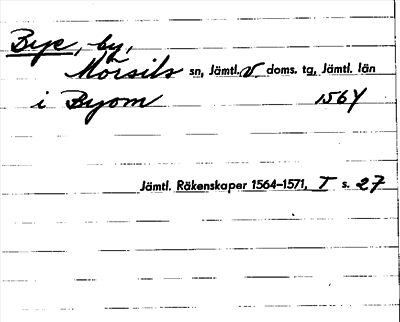 Bye, by,
Mörsils sn, Jämtl. v. doms. tg, Jämtl. län
i Byom 1564
Jämtl. Räkenskaper 1564–1571, T s. 27